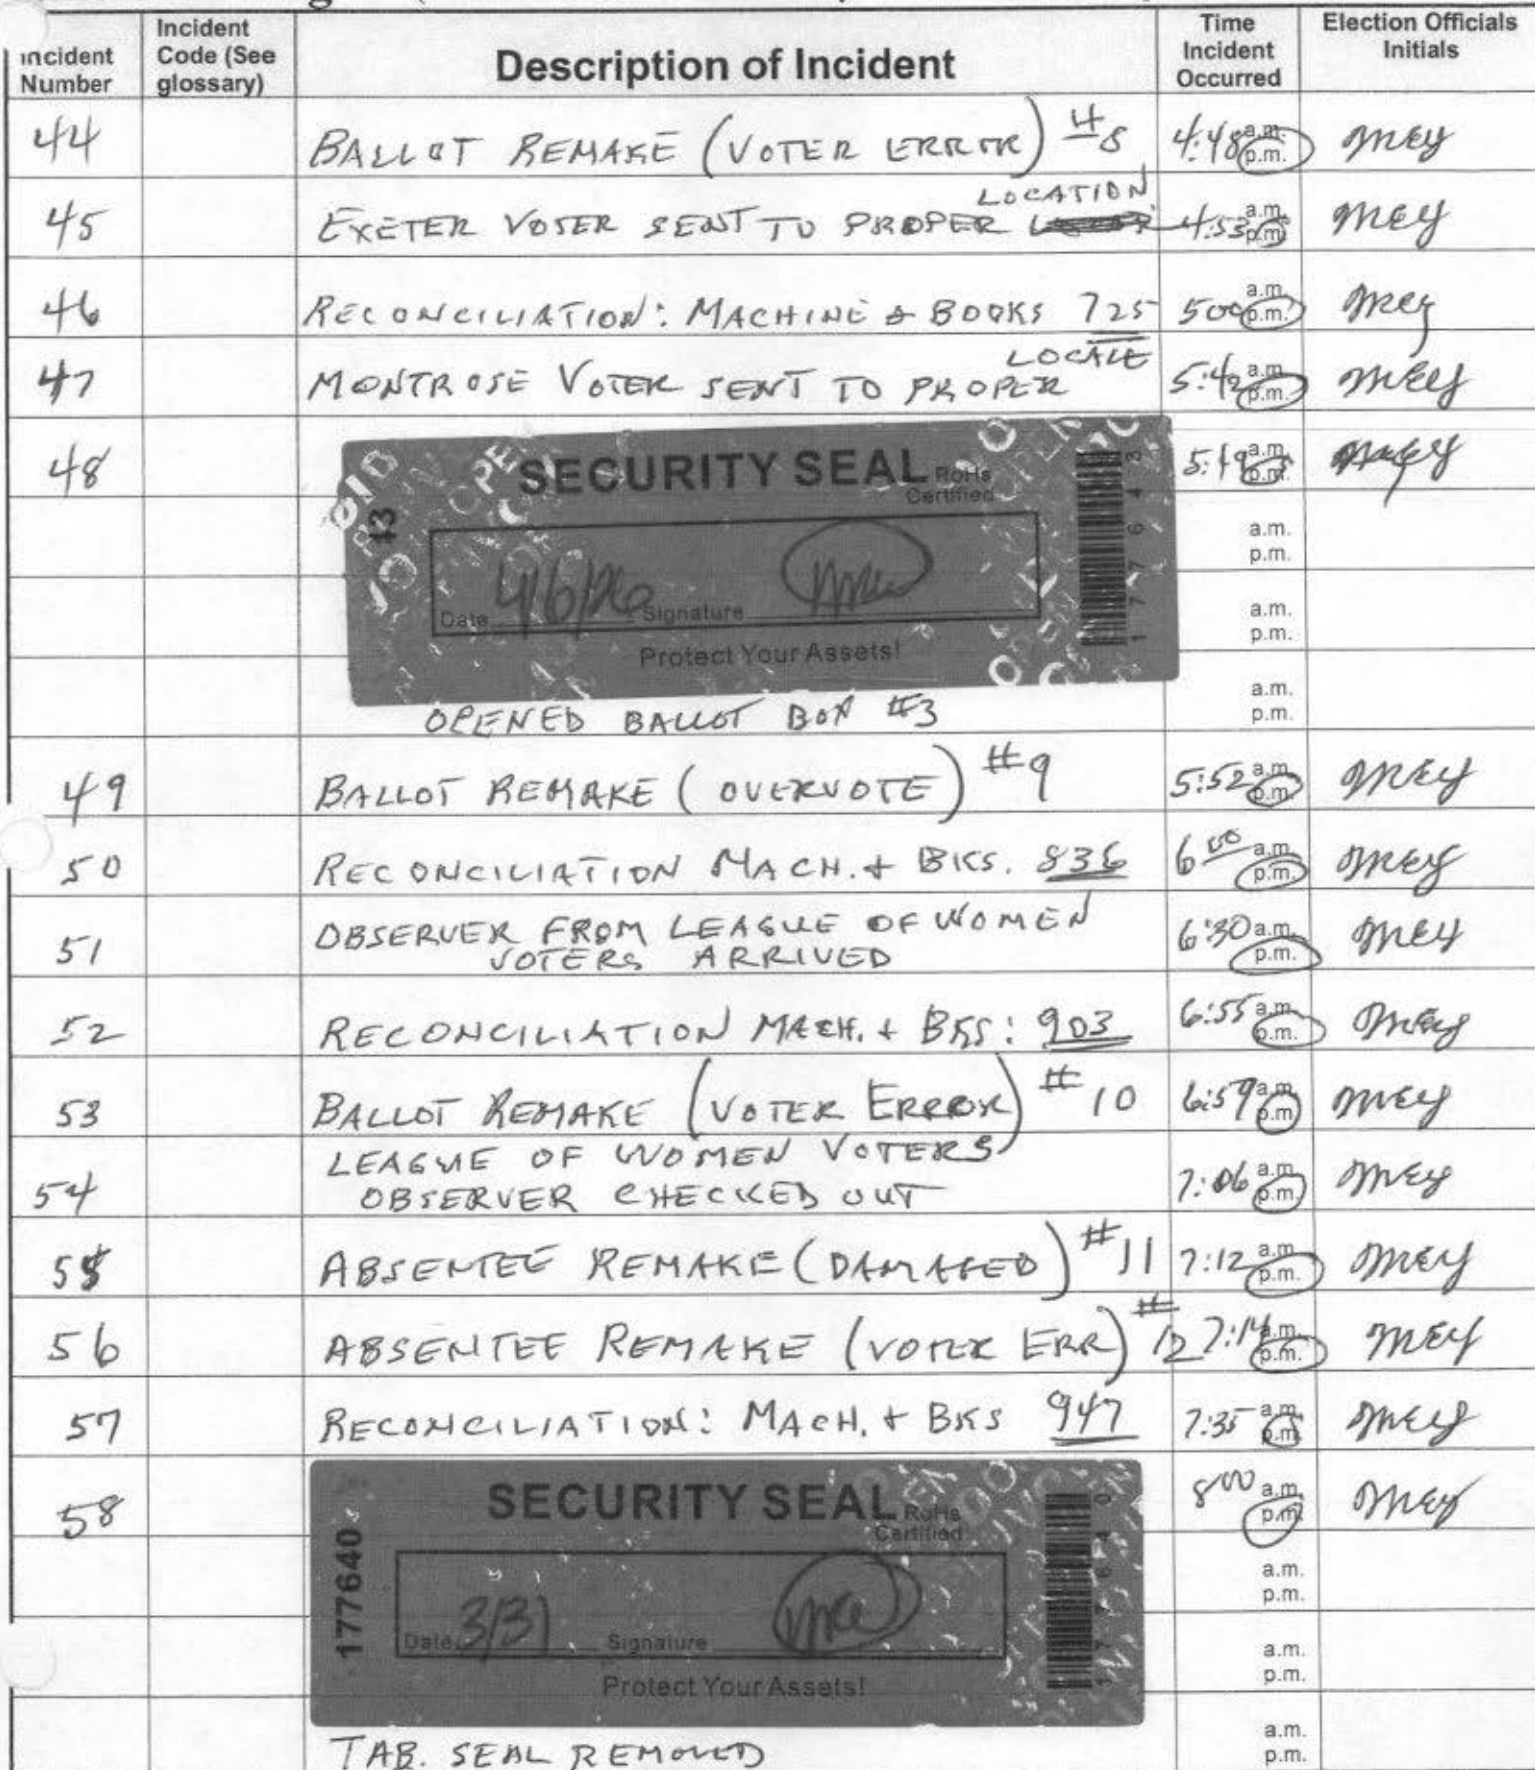 Incident Number | Incident Code (See glossary) | Description of Incident | Time Incident Occurred | Election Officials Initials
44 BALLOT REMAKE (VOTER ERROR) #8 4:48 a.m. p.m. mey
LOCATION
45 EXETER VOTER SENT TO PROPER 4:53 a.m. p.m. mey
46 RECONCILIATION: MACHINE & BOOKS 725 5:00 a.m. p.m. mey
LOCALE
47 MONTROSE VOTER SENT TO PROPER 5:42 a.m. p.m. mey
48 5:49 a.m. p.m. mey
SECURITY SEAL RoHs Certified
Date 4/6/26 Signature
Protect Your Assets!
a.m.
p.m.
a.m.
p.m.
a.m.
p.m.
OPENED BALLOT BOX #3
49 BALLOT REMAKE (OVERVOTE) #9 5:52 a.m. p.m. mey
50 RECONCILIATION MACH. + BKS. 836 6:00 a.m. p.m. mey
51 OBSERVER FROM LEAGUE OF WOMEN 6:30 a.m. p.m. mey
VOTERS ARRIVED
52 RECONCILIATION MACH. + BKS: 903 6:55 a.m. p.m. mey
53 BALLOT REMAKE (VOTER ERROR) #10 6:59 a.m. p.m. mey
LEAGUE OF WOMEN VOTERS
54 OBSERVER CHECKED OUT 7:06 a.m. p.m. mey
55 ABSENTEE REMAKE (DAMAGED) #11 7:12 a.m. p.m. mey
56 ABSENTEE REMAKE (VOTER ERR) #12 7:14 a.m. p.m. mey
57 RECONCILIATION: MACH. + BKS 947 7:35 a.m. p.m. mey
58 8:00 a.m. p.m. mey
SECURITY SEAL RoHs Certified
177640
Date 3/31 Signature
Protect Your Assets!
a.m.
p.m.
a.m.
p.m.
a.m.
p.m.
TAB. SEAL REMOVED